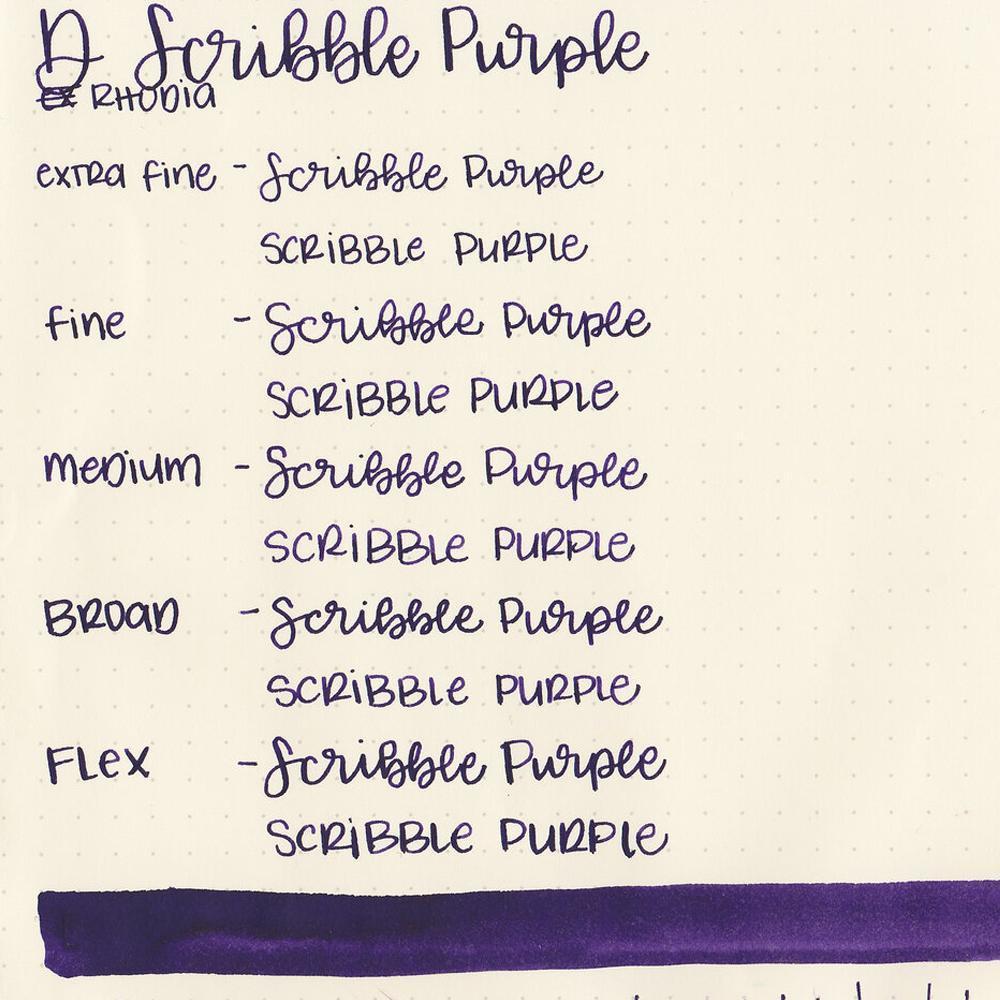 D Scribble Purple
RHODIA
extra fine - Scribble Purple
SCRiBBLe PURPLe
fine - Scribble Purple
SCRiBBLe PURPLe
meDium - Scribble Purple
SCRiBBLe PURPLe
BROaD - Scribble Purple
SCRiBBLe PURPLe
FLex - Scribble Purple
SCRiBBLe PURPLe